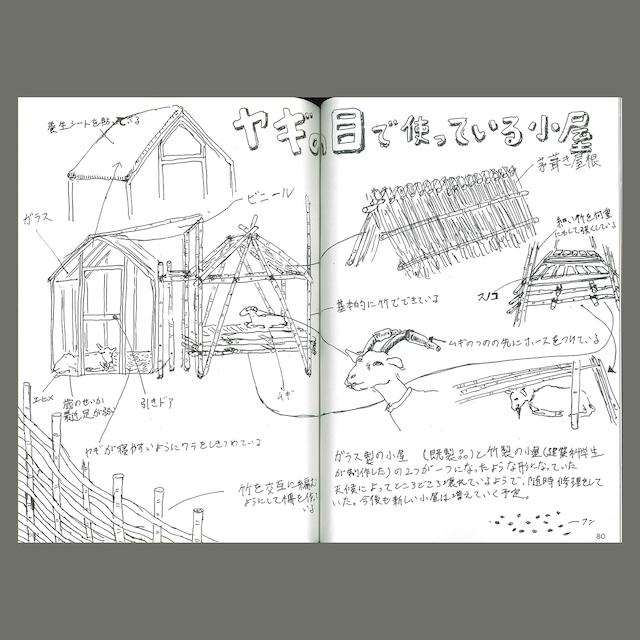 ヤギの目で使っている小屋
養生シートを貼っている
ガラス
ビニール
茅葺き屋根
細い竹を何重
にもして強くしている
スノコ
基本的に竹でできている
ムギのつのの先にホースをつけている
エヒメ
歳のせいか
最近足が弱い
引きドア
ムギ
ヤギが寝やすいようにワラをしきつめている
竹を交互に編む
ようにして柵を作って
いる
ガラス製の小屋 (既製品)と竹製の小屋(建築科学生
が制作した)の2つが一つになったような形になっていた
天候によってところどころ壊れているようで、随時修理をして
いた。今後も新しい小屋は増えていく予定。
フン
80